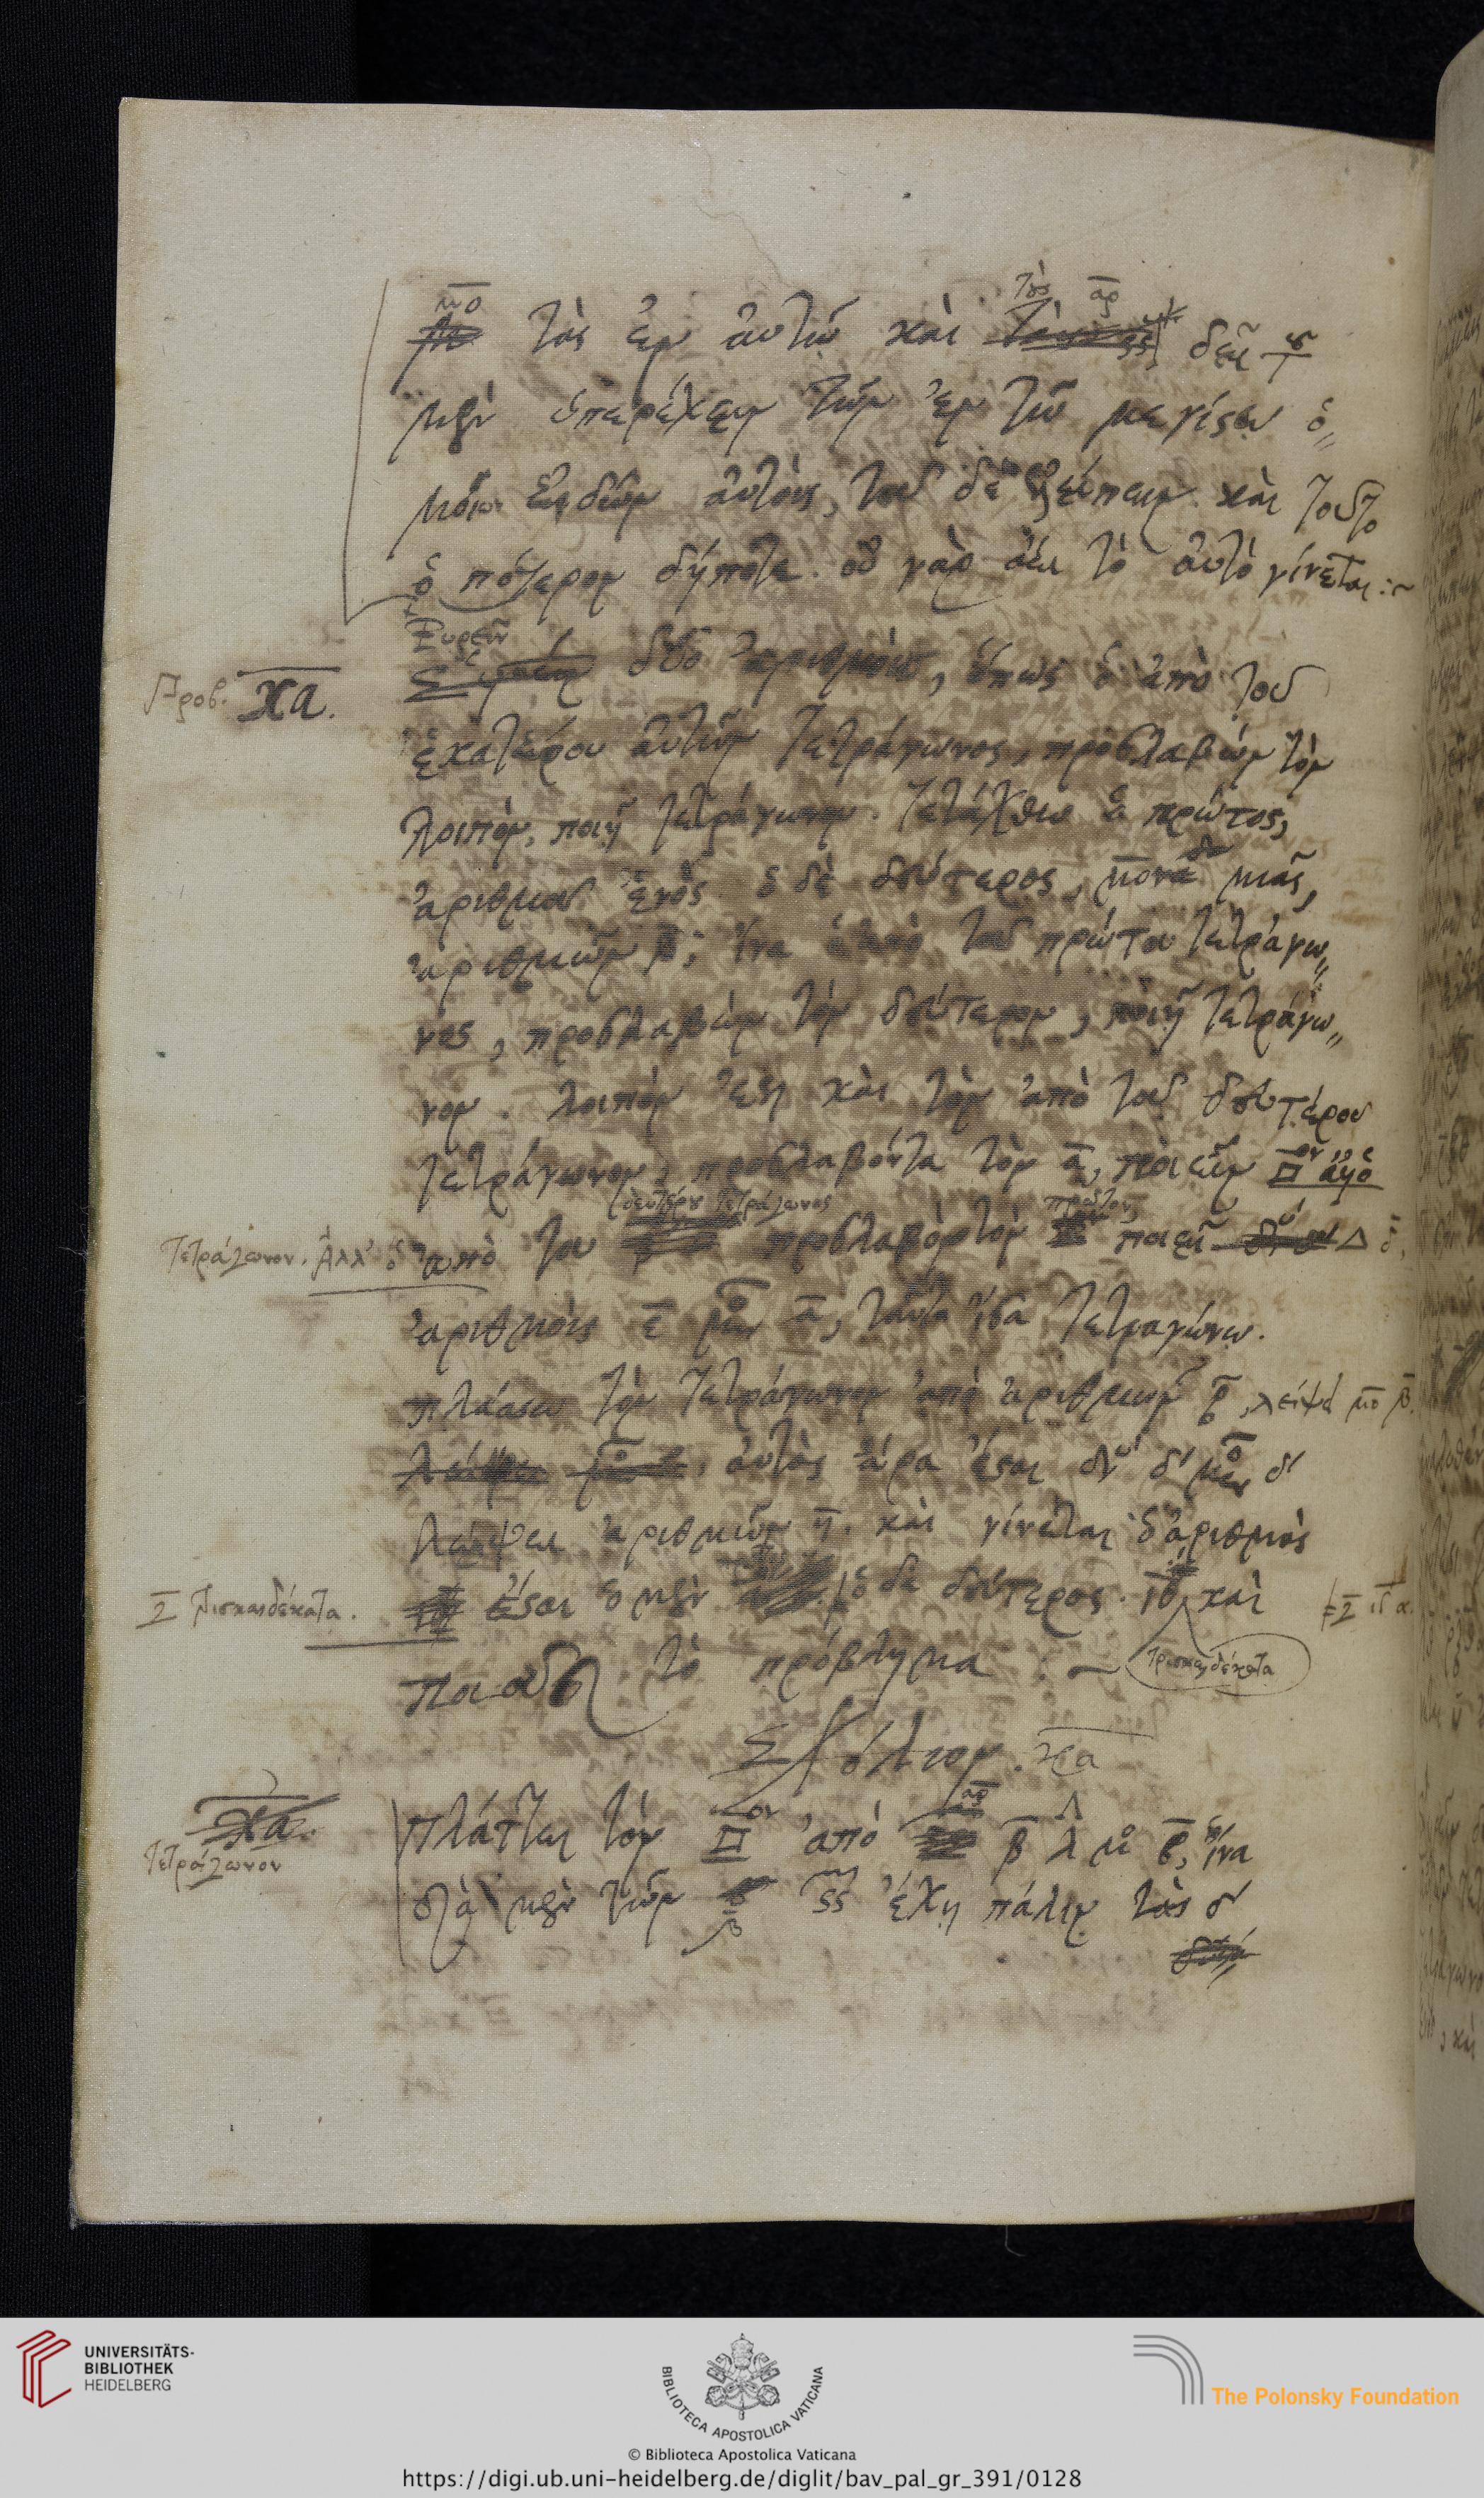 μο τὰς ἐν αὐτῷ καὶ τοὺς ἀρ δεῖ
μὲν ὑπερέχειν τῶν ἐν τῷ μεγίστῳ ὁ〃
αὐτοὺς, τοῦ δὲ καὶ τοῦτο
ὁπότερον δήποτε. οὐ γὰρ ἀεὶ τὸ αὐτὸ γίνεται :~
Προβ. κα. Εὑρεῖν δύο ἀριθμοὺς, ὅπως ὁ ἀπὸ τοῦ
ἑκατέρου αὐτῶν τετράγωνος, προσλαβὼν τὸν
λοιπὸν, ποιῇ τετράγωνον. τετάχθω ὁ πρῶτος,
ἀριθμοῦ ἑνὸς ὁ δὲ δεύτερος, μονάδος μιᾶς,
ἀριθμῶν β̄, ἵνα ὁ ἀπὸ τοῦ πρώτου τετράγω〃
νος, προσλαβὼν τὸν δεύτερον, ποιῇ τετράγω〃
νον. λοιπόν ἐστι καὶ τὸν ἀπὸ τοῦ δευτέρου
τετράγωνον, προσλαβόντα τὸν ᾱ, ποιεῖν □ον
δευτέρου τετράγωνος πρῶτον,
τετράγωνον. ἀλλ' ὁ ἀπὸ τοῦ προσλαβὼν τὸν ποιεῖ Δ δ̄,
ἀριθμοὺς ε̄ μο ᾱ, ταῦτα ἴσα τετραγώνῳ.
πλάσσω τὸν τετράγωνον ἀπὸ ἀριθμῶν β̄, λείψει μο β̄.
αὐτὸς ἄρα ἔσται δυ δ' μο δ'
λείψει ἀριθμῶν η̄. καὶ γίνεται ὁ ἀριθμὸς
τρισκαιδέκατα. ἔσται ὁ μὲν ὁ δὲ δεύτερος ιθ καὶ
ποιοῦσι τὸ πρόβλημα :~ τρισκαιδέκατα
Σχόλιον. κα
κα. Πλάττει τὸν □ον ἀπὸ β̄ λ μο β̄, ἵνα
τετράγωνον
διὰ μὲν τῶν β̄ ςς ἔχῃ πάλιν τὰς δ
UNIVERSITÄTS-
BIBLIOTHEK
HEIDELBERG
BIBLIOTECA APOSTOLICA VATICANA
The Polonsky Foundation
© Biblioteca Apostolica Vaticana
https://digi.ub.uni-heidelberg.de/diglit/bav_pal_gr_391/0128